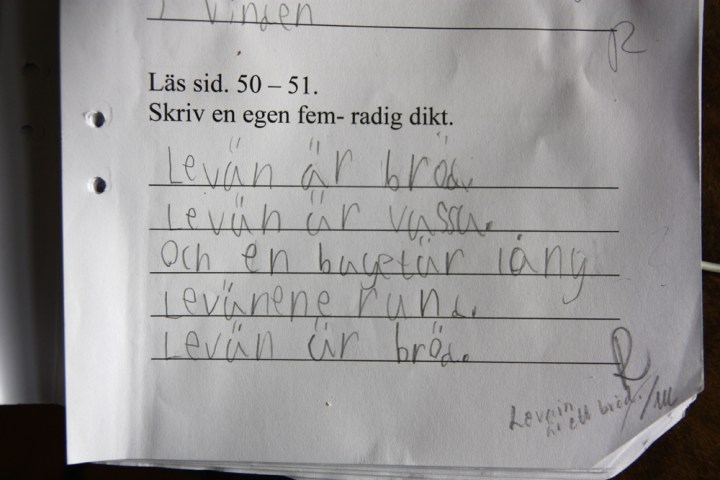 vinden
R
Läs sid. 50 – 51.
Skriv en egen fem- radig dikt.
Levän är bröd.
Levän är vassa.
Och en bagetär lång
Levänene rund.
Levän är bröd.
R
Levain
är ett bröd.